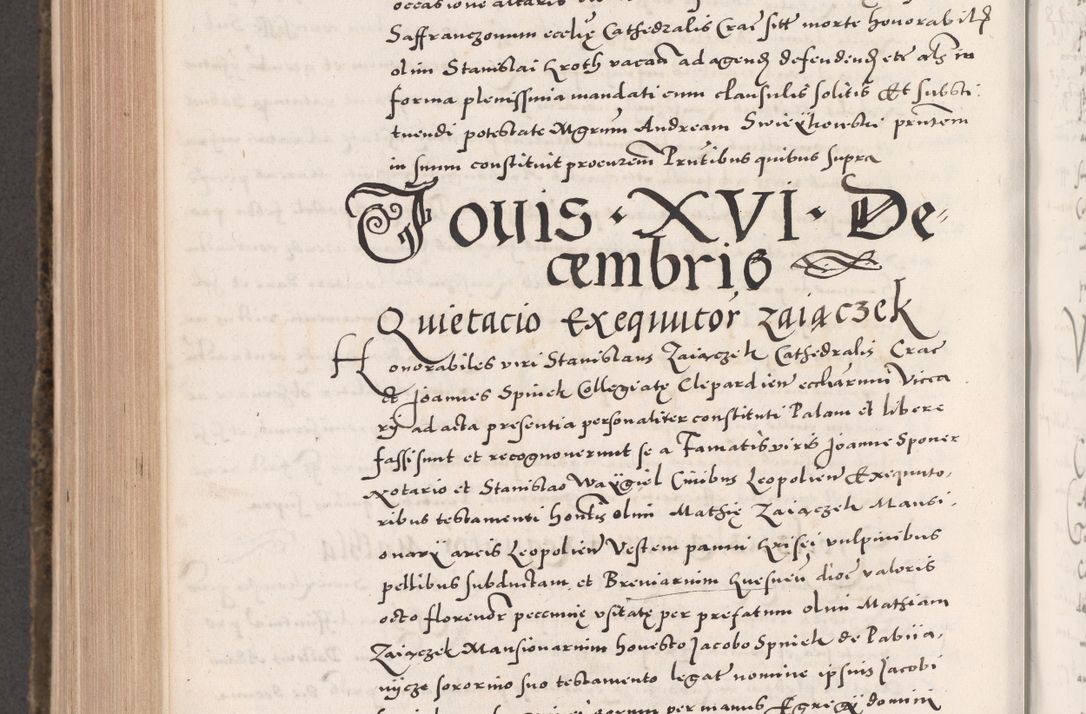 occasione altaris
Saffranczonum ecclię Cathedralis Crac̃ sitt morte honorabil
olim Stanislai Kroth vacañ ad agend̃ defendend̃ etc als in
forma plenissima mandati cum clausulis solitis Et substi-
tuendi potestate Mgrum Andream Swieÿkowski pñtem
in suum constituit procurem̃ Pñtibus quibus supra
Jouis · XVI · De-
cembris
Quietacio Exequutor̃ Zaiączek
Honorabiles viri Stanislaus Zaiączek Cathedralis Crac̃
et Joannes Spinek Collegiatę Clepardien̄ eccliarum Vicca
rÿ ad acta presentia personaliter constituti Palam et libere
fassi sunt et recognouerunt se a Famatis viris Joanne Sponer
Notario et Stanislao Waÿgiel Ciuibus Leopolien̄ Exequuto-
ribus testamenti honĩs olim Mathię Zaiączek Mansi-
onarÿ arcis Leopolien̄ Vestem panni krisei vulpinibus
pellibus subductam et Breviarium kuesneu̅ dioc̃ valoris
octo florenor̃ pecunię vsitatę per prefatum olim Mathiam
Zaiączek Mansionarium honesto Jacobo Spinek de Pabija-
nijcze sororino suo testamento legat nomine ipsius Jacobi
per manus Egregÿ domini